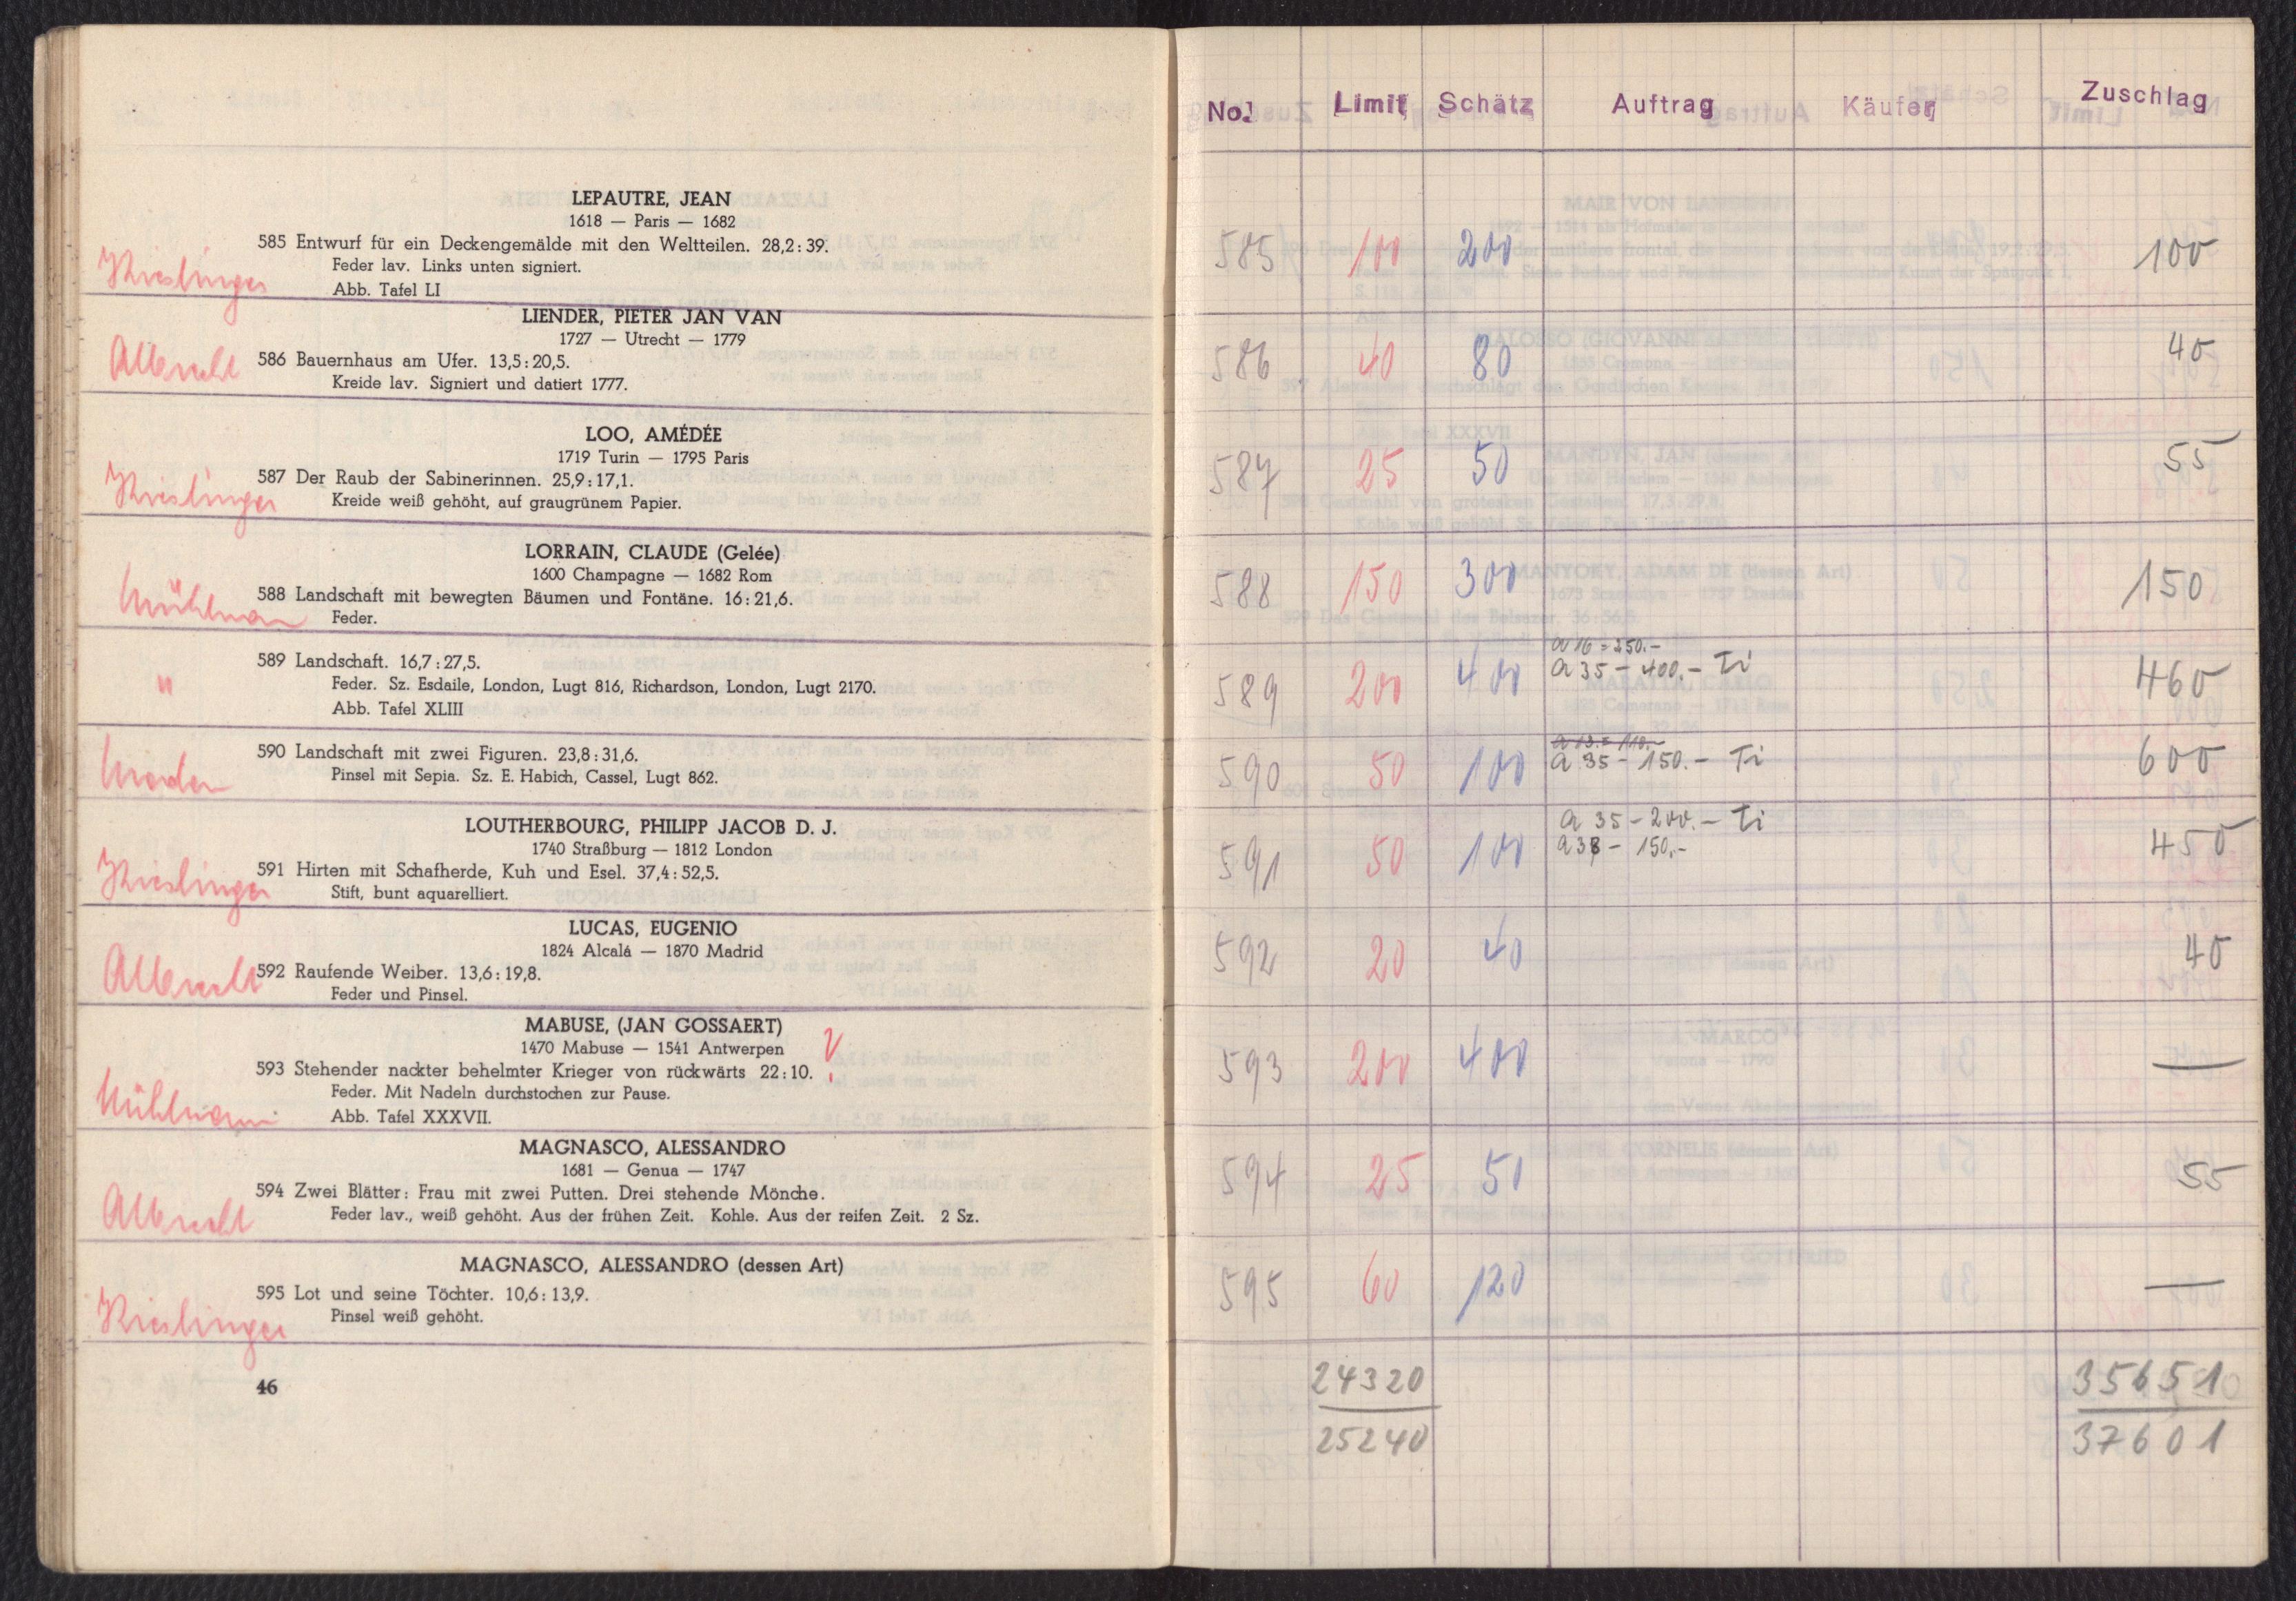 LEPAUTRE, JEAN
1618 — Paris — 1682
585 Entwurf für ein Deckengemälde mit den Weltteilen. 28,2 : 39.
Feder lav. Links unten signiert.
Kieslinger
Abb. Tafel LI
LIENDER, PIETER JAN VAN
1727 — Utrecht — 1779
Albrecht 586 Bauernhaus am Ufer. 13,5 : 20,5.
Kreide lav. Signiert und datiert 1777.
LOO, AMÉDÉE
1719 Turin — 1795 Paris
587 Der Raub der Sabinerinnen. 25,9 : 17,1.
Kieslinger Kreide weiß gehöht, auf graugrünem Papier.
LORRAIN, CLAUDE (Gelée)
1600 Champagne — 1682 Rom
588 Landschaft mit bewegten Bäumen und Fontäne. 16 : 21,6.
Mühlman Feder.
589 Landschaft. 16,7 : 27,5.
" Feder. Sz. Esdaile, London, Lugt 816, Richardson, London, Lugt 2170.
Abb. Tafel XLIII
590 Landschaft mit zwei Figuren. 23,8 : 31,6.
Pinsel mit Sepia. Sz. E. Habich, Cassel, Lugt 862.
LOUTHERBOURG, PHILIPP JACOB D. J.
1740 Straßburg — 1812 London
Kieslinger 591 Hirten mit Schafherde, Kuh und Esel. 37,4 : 52,5.
Stift, bunt aquarelliert.
LUCAS, EUGENIO
1824 Alcalá — 1870 Madrid
Albrecht 592 Raufende Weiber. 13,6 : 19,8.
Feder und Pinsel.
MABUSE, (JAN GOSSAERT)
1470 Mabuse — 1541 Antwerpen ?
593 Stehender nackter behelmter Krieger von rückwärts 22 : 10.
Feder. Mit Nadeln durchstochen zur Pause.
Mühlmann Abb. Tafel XXXVII.
MAGNASCO, ALESSANDRO
1681 — Genua — 1747
594 Zwei Blätter: Frau mit zwei Putten. Drei stehende Mönche.
Albrecht Feder lav., weiß gehöht. Aus der frühen Zeit. Kohle. Aus der reifen Zeit. 2 Sz.
MAGNASCO, ALESSANDRO (dessen Art)
595 Lot und seine Töchter. 10,6 : 13,9.
Kieslinger Pinsel weiß gehöht.
46
No. Limit Schätz Auftrag Käufer Zuschlag
585 100 200 100
586 40 80 40
587 25 50 55
588 150 300 150
a 16 = 250.-
589 200 400 a 35 - 400.- Ti 460
a 13 = 110.-
590 50 100 a 35 - 150.- Ti 600
a 35 - 200.- Ti
591 50 100 a 38 - 150,- 450
592 20 40 40
593 200 400 —
594 25 50 55
595 60 120 —
24320 35651
25240 37601